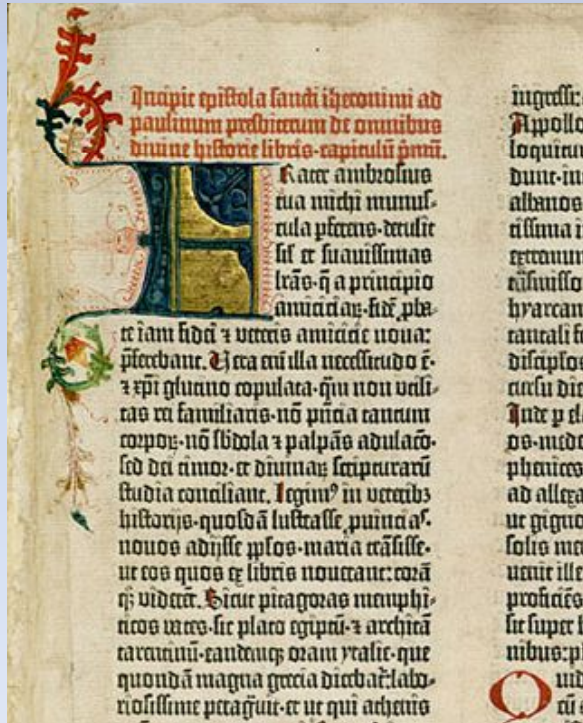 Incipit epistola sancti iheronimi ad
paulinum presbiterum de omnibus
divine historie libris·capitulū pͥmū.
Frater ambrosius
tua michi munus-
cula ꝑferens·detulit
sil̛ et suavissimas
lrās·q̄ a principio
amiciciaꝝ·fidē ꝓba-
te iam fidei ⁊ veteris amicicie noua:
p̄ferebant. Vera em̄ illa necessitudo ē·
⁊ xp̄i glutino copulata·qm̄ non vtili-
tas rei familiaris·nō pn̄cia tantum
corpoꝝ·nō sb̄dola ⁊ palpās adulacō·
sed dei timor·et diuinaꝝ scripturarū
studia conciliant. Legimꝰ in veteribꝫ
historijs·quosdā lustrasse ꝓuincias·
nouos adijsse ppl̄os·maria trāsisse·
ut eos quos ex libris nouerant: corā
qꝫ viderēt. Sicut pitagoras memphi-
ticos vates·sic plato egiptū·⁊ architā
tarentinū·eandemqꝫ oram ytalie·que
quondā magna grecia dicebat̄: labo-
riosissime peragͣuit·et ut qui athenis
ingress
Appollo
loquitur
dunt·in
albanos
tissima i
extremum
trāsmisso
hyarcam
tantali fo
discipl̄os
cursu di
Inde ꝑ el
os·medo
phenices
ad allexa
ut gigno
solis me
uenit ille
proficiēs
sic super
nibus:p